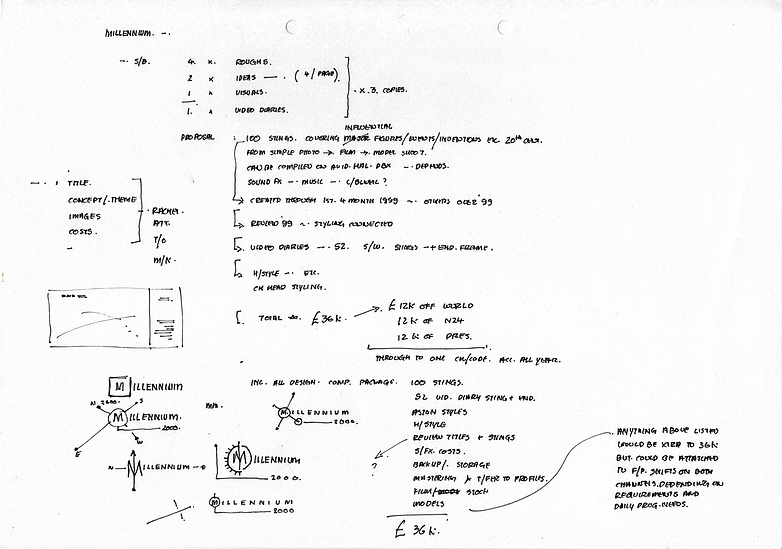 MILLENNIUM. -.
-. S/B. 4 x. ROUGHS.
2 x IDEAS -. (4/PAGE)
1 x VISUALS.
1. x VIDEO DIARIES.
. x. 3. COPIES.
INFLUENTIAL
PROPOSAL :. 100 STINGS. COVERING MAJOR FIGURES/EVENTS/INVENTIONS ETC. 20TH CENT.
FROM SIMPLE PHOTO → FILM → MODEL SHOOT.
CAN BE COMPILED ON AVID. HAL. -. DEPENDS.
SOUND FX -. MUSIC -.
CREATED THROUGH 1ST. 4 MONTH 1999 ~. OTHERS OVER '99
-. 1 TITLE.
CONCEPT/.THEME
IMAGES
COSTS.
-
. RACHEL.
T/O
M/K.
REVIEW '99 ~. STYLING CONNECTED
VIDEO DIARIES -. 52. S/W. STINGS -+ END. FRAME.
H/STYLE -. ETC.
CH HEAD STYLING.
TOTAL £36K. → £12K OFF WORLD
12K OF N24
12K OF PRES.
THROUGH TO ONE CH/CODE. ACC. ALL YEAR.
INC. ALL DESIGN. COMP. PACKAGE. 100 STINGS.
52 VID. DIARY STING +
ASTON STYLES
H/STYLE
REVIEW TITLES + STINGS
S/FX. COSTS.
BACKUP/. STORAGE
MASTERING T/FER TO PROFILES.
FILM/ STOCK
MODELS
£36K.
?
ANYTHING ABOVE LISTED
WOULD BE XTRA TO 36K
BUT COULD BE ATTACHED
TO F/P. SHIFTS ON BOTH
CHANNELS. DEPENDING ON
REQUIREMENTS AND
DAILY PROG. NEEDS.
MILLENNIUM
N. 2000. S
MILLENNIUM.
2000.
E W
MILLENNIUM
2000.
N MILLENNIUM
MILLENNIUM
2000.
MILLENNIUM
2000